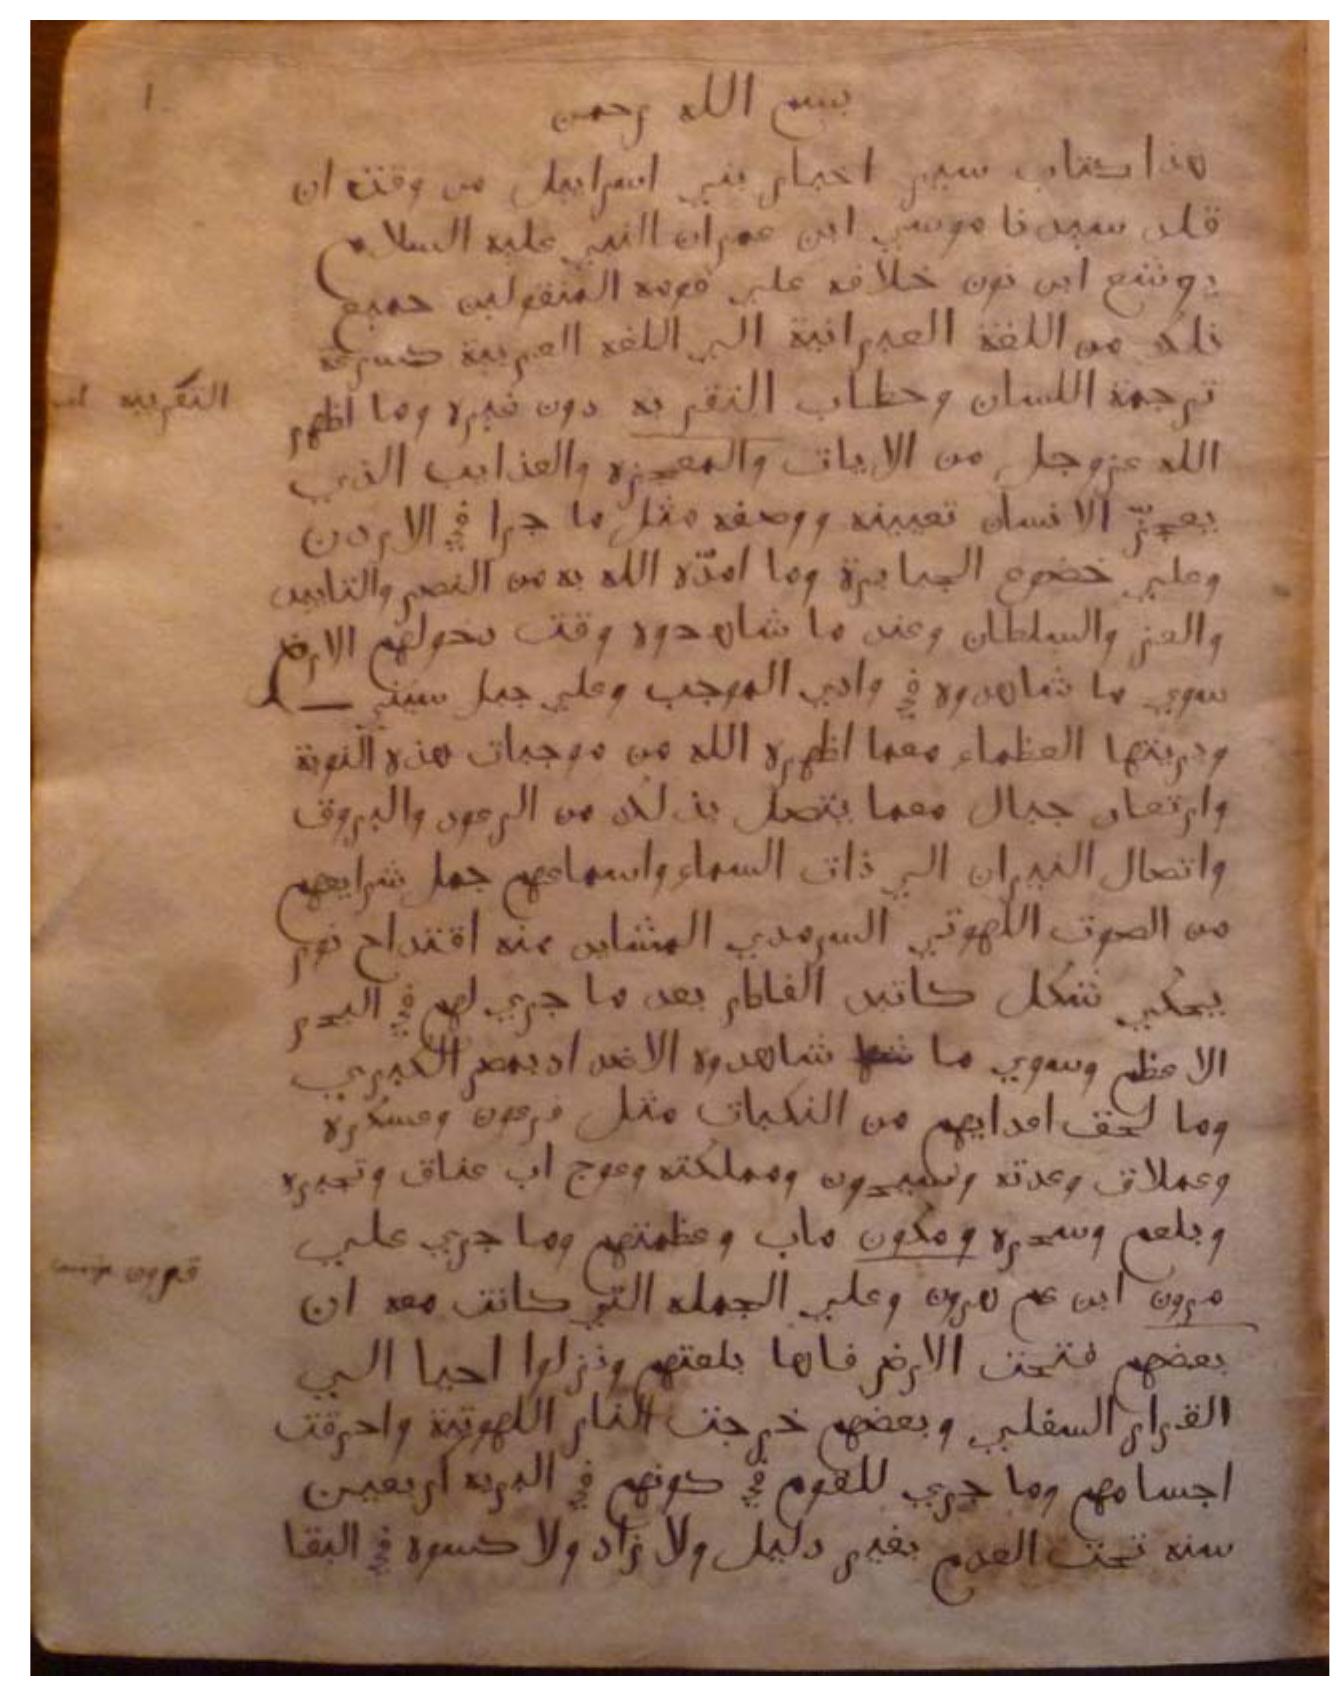 ١
بسم الله رحمن
هذا كتاب سير اخبار بني اسراييل من وقت ان
قلد سيدنا موسي ابن عمران النبي عليه السلام
يوشع ابن نون خلافه علي قومه المنقولين جميع
ذلك من اللغة العبرانية الي اللغه العربية كسرعة
ترجمة اللسان وخطاب التقربه دون غيره وما اظهر
التقريبه
الله عز وجل من الايات والمعجزه والعذايب الذي
يعجزّ الانسان تعيينه ووصفه مثل ما جرا في الاردن
وعلي خضوع الجبابرة وما امدّه الله به من النصر والتاييد
والعز والسلطان وعند ما شاهدوه وقت دخولهم الارض
سوي ما شاهدوه في وادي الموجب وعلي جبل سيني
العظماء معما اظهره الله من موجبات هذه النوبة
وارتعاد جبال معما يتصل بذلك من الرعود والبروق
واتصال النيران الي ذات السماء واسماعهم جمل شرايعهم
من الصوت اللهوتي السرمدي منه اقتداح نور
يحكي شكل كاتبد الفاطر بعد ما جري لهم في البحر
الاعظم وسوي ما شاهدوه الاضداد بمصر الكبري
وما لحق اعدايهم من النكبات مثل فرعون وعسكره
وعملاق وعدته وسيحون ومملكته وعوج اب عناق وتجبره
وبلعم وسحره ومكون ماب وعظمتهم وما جري علي
قرون
مرون ابن عم هرون وعلي الجمله التي كانت معه ان
بعضهم فتحت الارض فاها بلعتهم ونزلوا احيا الي
القرار السفلي وبعضهم خرجت النار اللهوتية واحرقت
اجسامهم وما جري للقوم في كونهم في البريه اربعين
سنه تحت العدم بغير دليل ولا زاد ولا كسوه في البقا